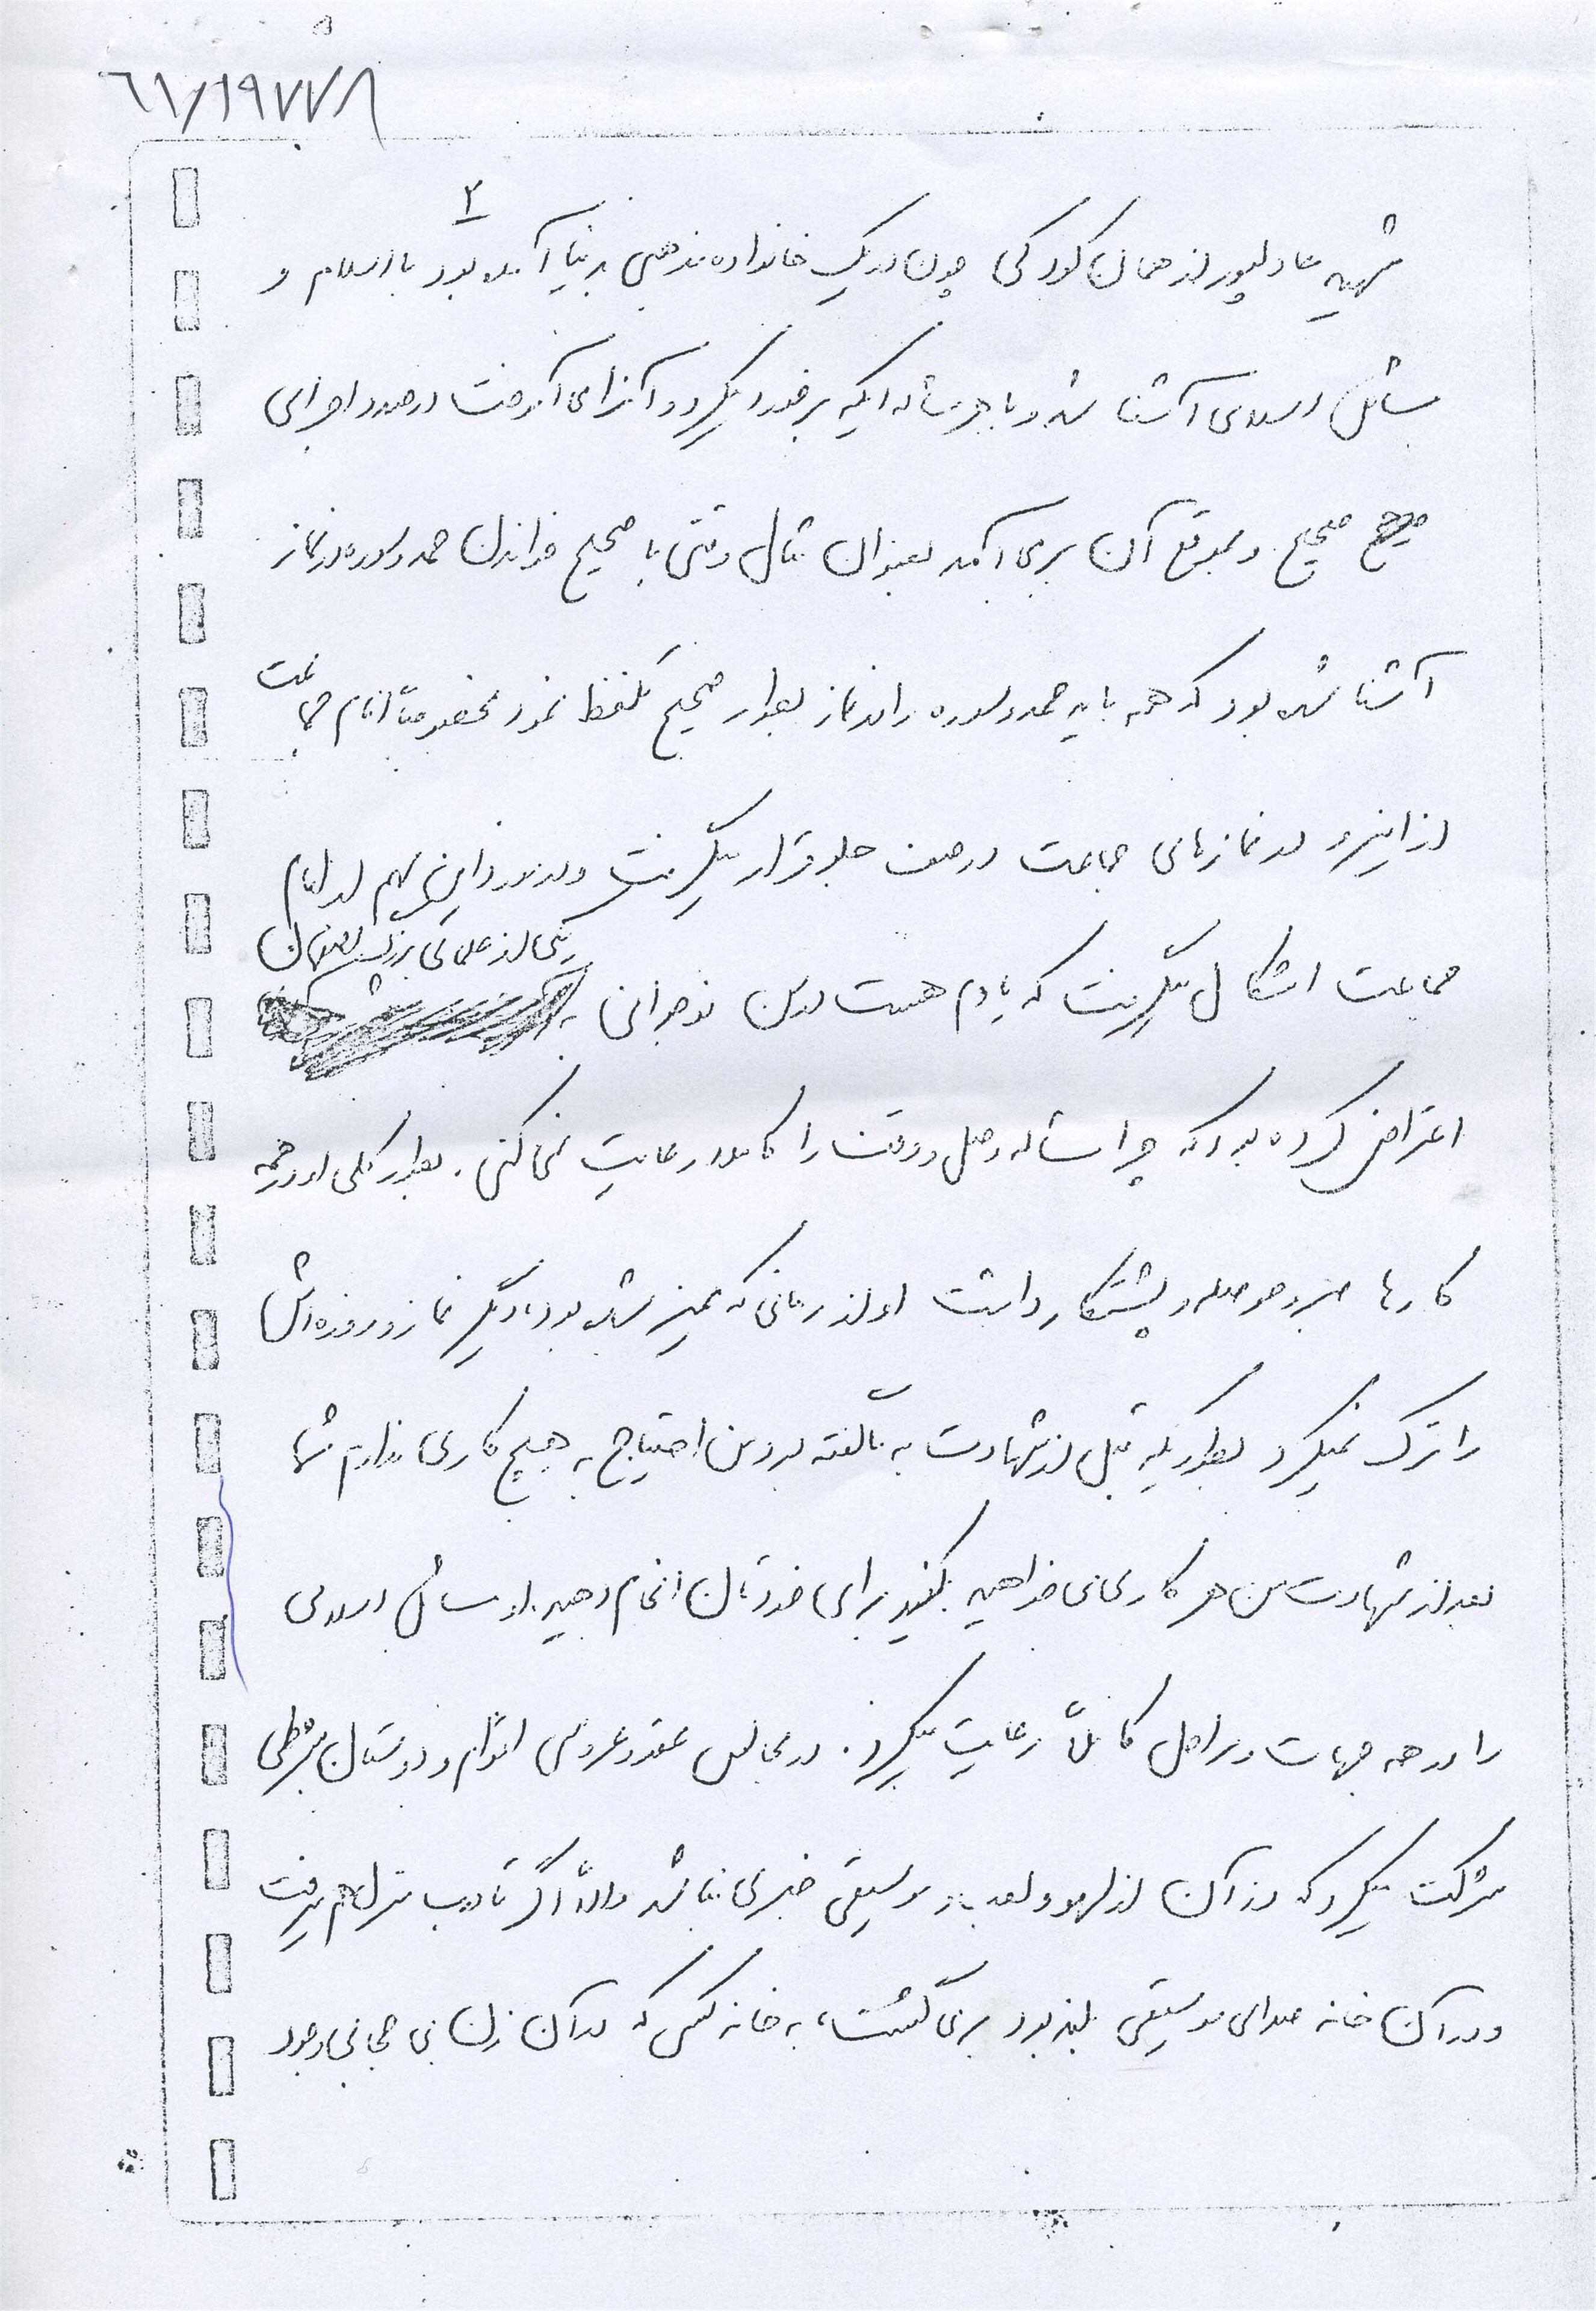 ٦١/١٩٧٧٨
٢
شهید عادلپور از همان کودکی چون در یک خانواده مذهبی بدنیا آمده بود با اسلام و
مسائل اسلامی آشنا شد و با هر مساله ایکه برخورد میکرد و آنرا می آموخت درصدد اجرای
صحیح و بموقع آن برمی آمد بعنوان مثال وقتی با صحیح خواندن حمد و سوره در نماز
آشنا شده بود که همه باید حمد و سوره را در نماز بطور صحیح تلفظ نمود مخصوصاً امام جماعت
از اینرو در نمازهای جماعت در صف جلو قرار میگرفت و در مورد این مهم از امام
جماعت اشکال میگرفت که یادم هست در سن نوجوانی به یکی از علمای بزرگ
اعتراض کرده بود که چرا مساله وصل و وقف را کاملا رعایت نمی کنی. بطور کلی او در همه
کارها صبر و حوصله و پشتکار داشت او از زمانی که ممیز شده بود دیگر نماز و روزه اش
را ترک نمیکرد بطوریکه قبل از شهادت به ما گفته بود من احتیاج به هیچ کاری ندارم شما
بعد از شهادت من هر کاری می خواهید بکنید برای خودتان انجام دهید او مسائل اسلامی
را در همه جهات و مراحل کاملاً رعایت میکرد. در مجالس عقد و عروسی اقوام و دوستان بشرطی
شرکت میکرد که در آن از لهو و لعب و موسیقی خبری نباشد والا اگر تا درب منزل هم میرفت
و در آن خانه صدای موسیقی بلند بود برمی گشت، به خانه کسی که در آن زنان بی حجابی وجود